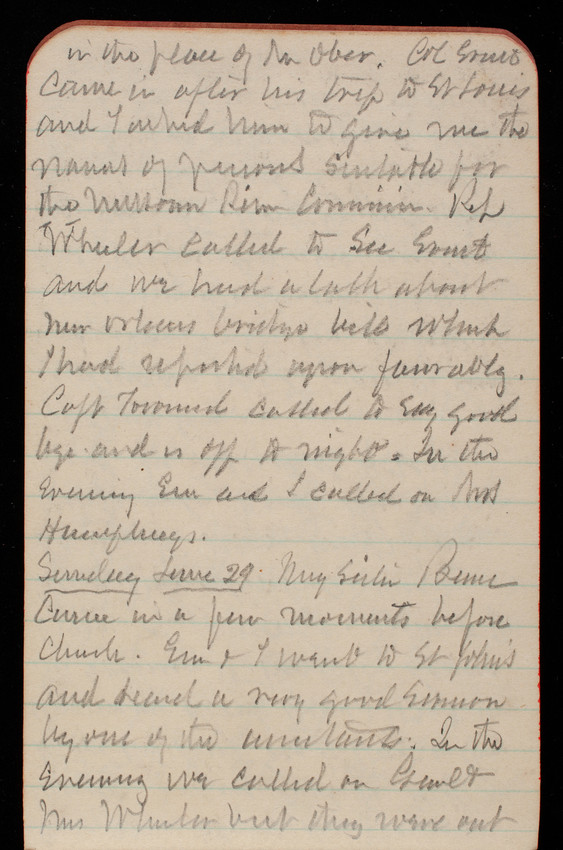 in the place of Mr Ober. Col Ernst
Came in after his trip to St Louis
and I asked him to give me the
names of persons suitable for
the Missouri River Commission. Rep
Wheeler called to see Ernst
and we had a talk about
New Orleans bridge bill which
I had reported upon favorably.
Capt Townsend called to say good
bye and is off to night = In the
evening Em and I called on Mrs
Humphreys.
Sunday June 29. My Sister
Came in a few moments before
Church. Em & I went to St John's
and heard a very good Sermon
by one of the assistants. In the
Evening we called on Genl &
Mrs Wheeler but they were out